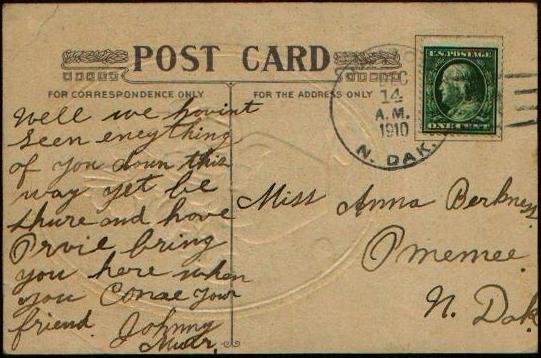 POST CARD
FOR CORRESPONDENCE ONLY
FOR THE ADDRESS ONLY
U.S. POSTAGE
ONE CENT
DEC
14
A.M.
1910
N. DAK.
Well we havint
seen eneything
of you down this
way yet be
shure and have
Orvie bring
you here when
you Come your
friend. Johnny
Muir.
Miss Anna Berkness
Omemee
N. Dak